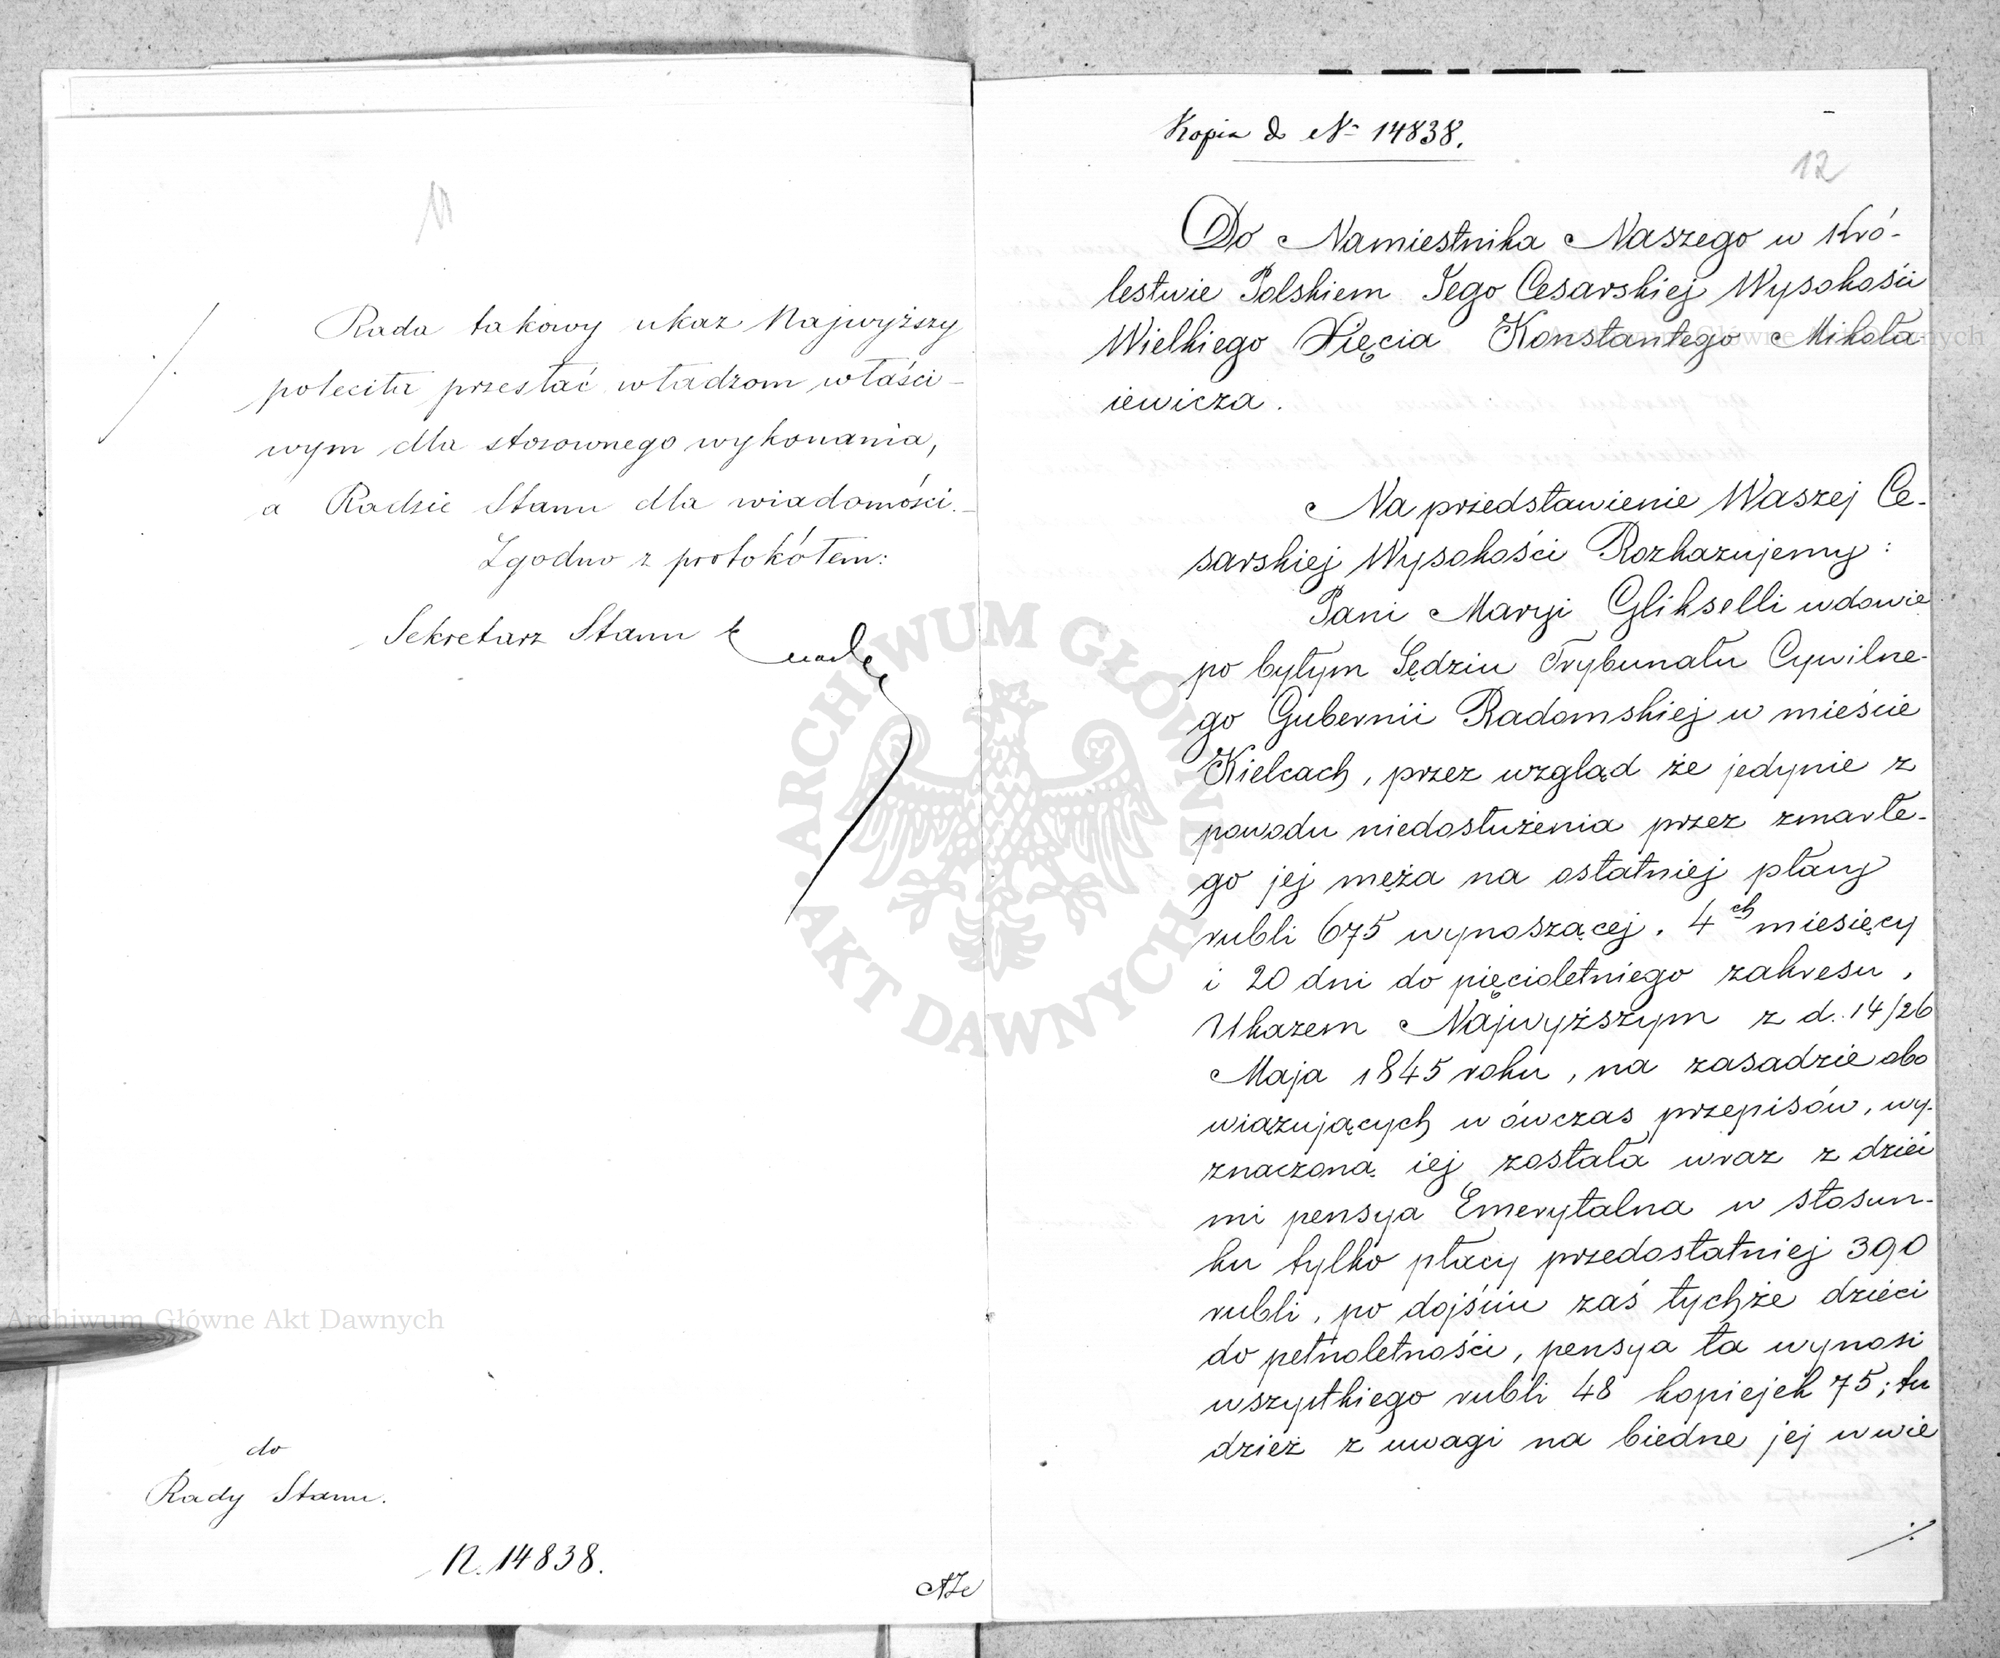 11
Rada takowy ukaz Najwyższy
poleciła przesłać władzom właści-
wym dla stosownego wykonania,
a Radzie Stanu dla wiadomości.-
Zgodno z protokółem:
Sekretarz Stanu
do
Rady Stanu.
N. 14838.
Kopia do N- 14838.
12
Do Namiestnika Naszego w Kró-
lestwie Polskiem Jego Cesarskiej Wysokości
Wielkiego Xięcia Konstantego Mikoła
iewicza.
Na przedstawienie Waszej Ce-
sarskiej Wysokości Rozkazujemy:
Pani Maryi Glikselli wdowie
po byłym Sędziu Trybunału Cywilne-
go Gubernii Radomskiej w mieście
Kielcach, przez wzgląd że jedynie z
powodu niedosłużenia przez zmarłe-
go jej męża na ostatniej płacy
rubli 675 wynoszącej. 4ch miesięcy
i 20 dni do pięcioletniego zakresu,
Ukazem Najwyższym z d. 14/26
Maja 1845 roku, na zasadzie obo
wiązujących w ówczas przepisów, wy-
znaczoną iej została wraz z dzieć
mi pensya Emerytalna w stosun-
ku tylko płacy przedostatniej 390
rubli, po dojściu zaś tychże dzieci
do pełnoletności, pensya ta wynosi
wszystkiego rubli 48 kopiejek 75; tu
dzież z uwagi na biedne jej w wie
ARCHIWUM GŁÓWNE AKT DAWNYCH
Archiwum Główne Akt Dawnych
Archiwum Główne Akt Dawnych